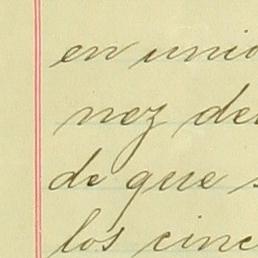 en unio
nez del
de que s
los cinc